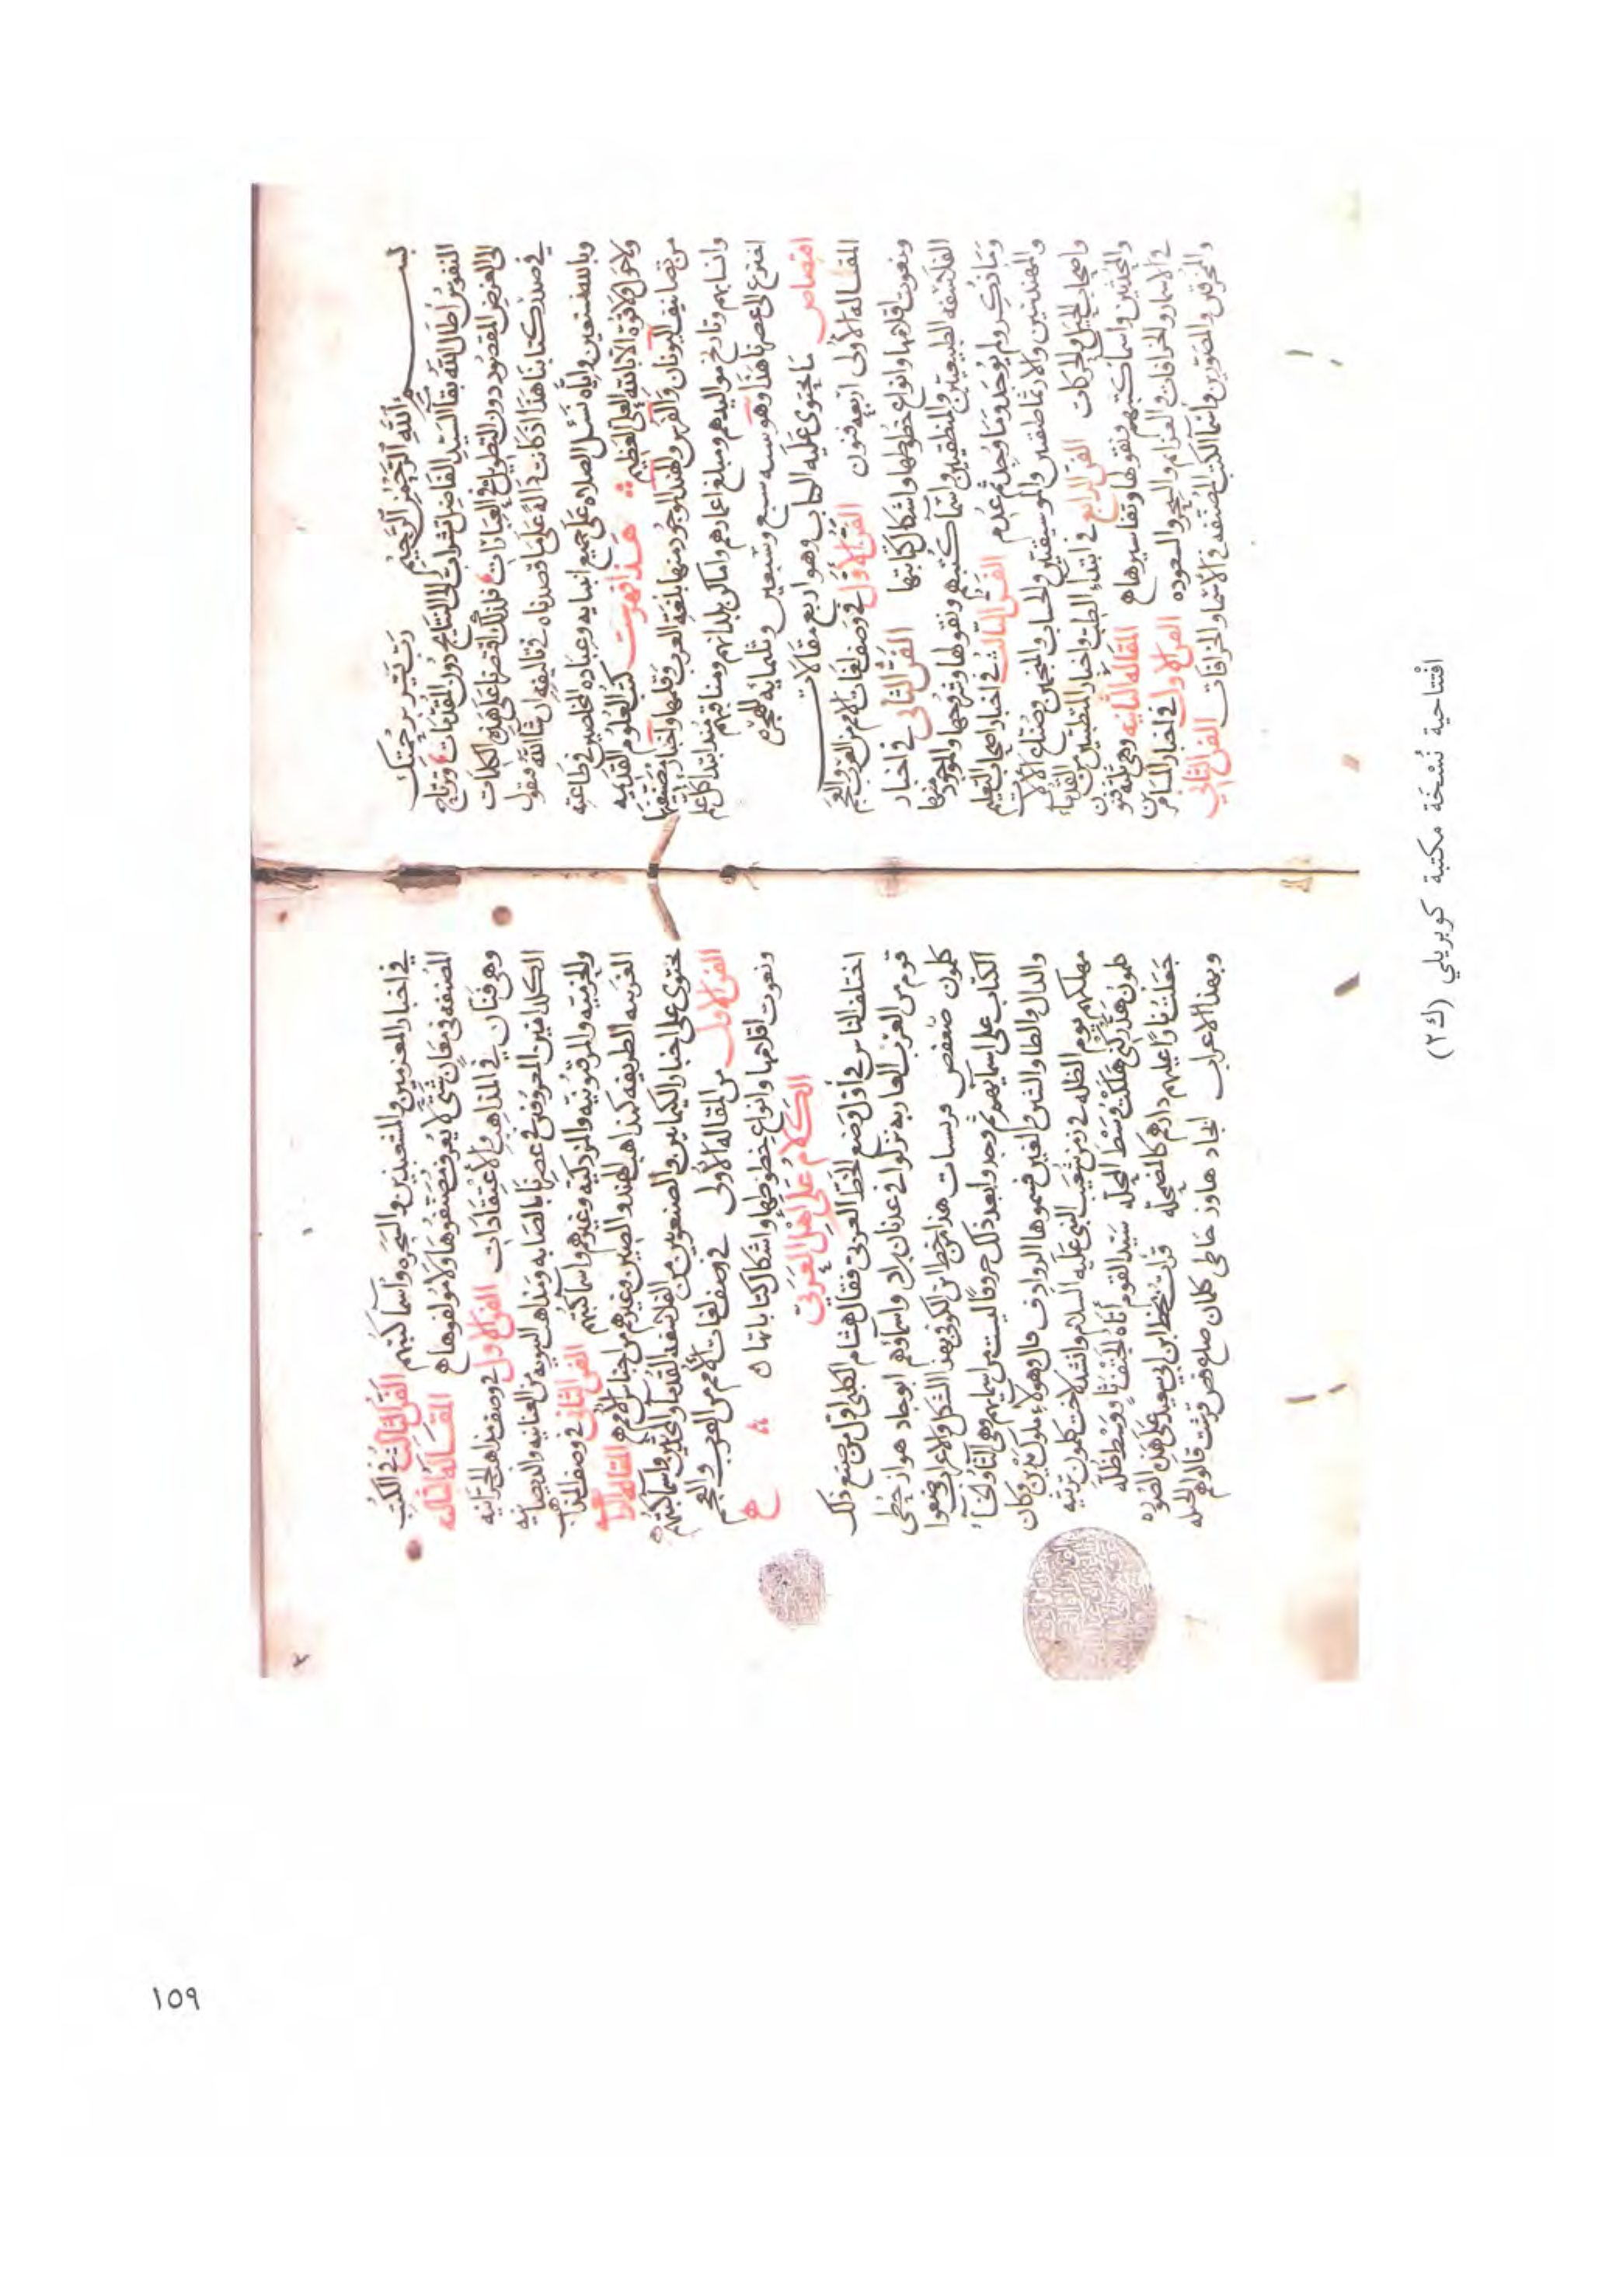 بسم الله الرحمن الرحيم رب يسر برحمتك
النفوس أطال الله بقا السيد الفاضل تشرئب الى النتايج دون المقدمات وترتاح
الى الغرض المقصود دون التطويل في العبارات فلذلك اقتصرنا على هذه الكلمات
في صدر كتابنا هذا اذ كانت دالة على ما قصدناه في تاليفه ان شا الله فنقول
وبالله نستعين واياه نسئل الصلاه على جميع انبيايه وعباده المخلصين في طاعته
ولا حول ولا قوة الا بالله العلي العظيم هذا فهرست كتب العلوم القديمه
من تصانيف اليونان والفرس والهند الموجود منها بلغة العرب وقلمها واخبار مصنفيها
وانسابهم وتاريخ مواليدهم ومبلغ اعمارهم واماكن بلدانهم ومناقبهم منذ ابتدا كل علم
اخترع الى عصرنا هذا وهو سنه سبع وسبعين وثلثمائه للهجره
اقتصاص ما يحتوى عليه الكتاب وهو اربع مقالات
المقاله الأولى اربعه فنون الفن الأول في وصف لغات الامم من العرب والعجم
ونعوت اقلامها وانواع خطوطها واشكال كتابتها الفن الثانى في اخبار
الفلاسفه الطبيعيين والمنطقيين واسما كتبهم ونقولها وشروحها والموجود منها
وما ذكر ولم يوجد وما وجد ثم عدم الفن الثالث في اخبار اصحاب التعاليم
والمهندسين والارثماطيقيين والموسيقيين والحساب والمنجمين وصناع الالات
واصحاب الحيل والحركات الفن الرابع في ابتداء الطب واخبار المتطببين من القدما
والمحدثين واسما كتبهم ونقولها وتفاسيرها المقاله الثانيه وهي ثلثه فنون
في الاسمار والخرافات والعزايم والسحر والشعوذه الفن الاول في اخبار المسامرين
والمخرفين والمصورين واسما الكتب المصنفه في الاسمار والخرافات الفن الثاني
في اخبار المعزمين والمشعبذين والسحره واسما كتبهم الفن الثالث في الكتب
المصنفه في معان شتى لا يعرف مصنفوها ولا مولفوها المقاله الثالثه
وهى فنان في المذاهب والاعتقادات الفن الاول في وصف مذاهب الحرنانيه
الكلدانيين المعروفين في عصرنا بالصابه ومذاهب الثنويه من المنانيه والديصانيه
والخرميه والمرقيونيه والمزدكيه وغيرهم واسما كتبهم الفن الثانى في وصف المذاهب
الغريبه الطريفه كمذاهب الهند والصين وغيرهم من اجناس الامم المقاله الرابعه
تحتوى على اخبار الكيمايين والصنعويين من الفلاسفه القدما والمحدثين واسما كتبهم
الفن الاول من المقاله الأولى في وصف لغات الأمم من العرب والعجم
ونعوت اقلامها وانواع خطوطها واشكال كتاباتها
الكلام على اهل العربى
اختلف الناس في أول وضع الخط العربى فقال هشام الكلبي اول من صنع ذلك
قوم من العرب العاربه نزلوا في عدنان بن اد واسماؤهم ابوجاد هواز حطى
كلمون صعفص قريسات هذا من خط ابن الكوفى بهذا الشكل والاعراب وضعوا
الكتاب على اسمايهم ثم وجدوا بعد ذلك حروفا ليست من اسمايهم وهى الثا والخا
والذال والظا والشين والغين فسموها الروادف قال وهولاء ملوك مدين وكان
مهلكهم يوم الظله في زمن شعيب النبى عليه السلام وانشد لاخت كلمون ترثيه
كلمون هد ركنى هلكه وسط المحله سيد القوم أتاه الحتف ثاو وسط ظله
جعلت نارا عليهم دارهم كالمضمحله قرات بخط ابن ابي سعد على هذه الصوره
وبهذا الاعراب ابجاد هاوز حاطى كلمان صاع فض قرست قالوا هم الجبله
افتتاحية نُسْخَة مكتبة كوبريلي (ك٢)
١٥٩